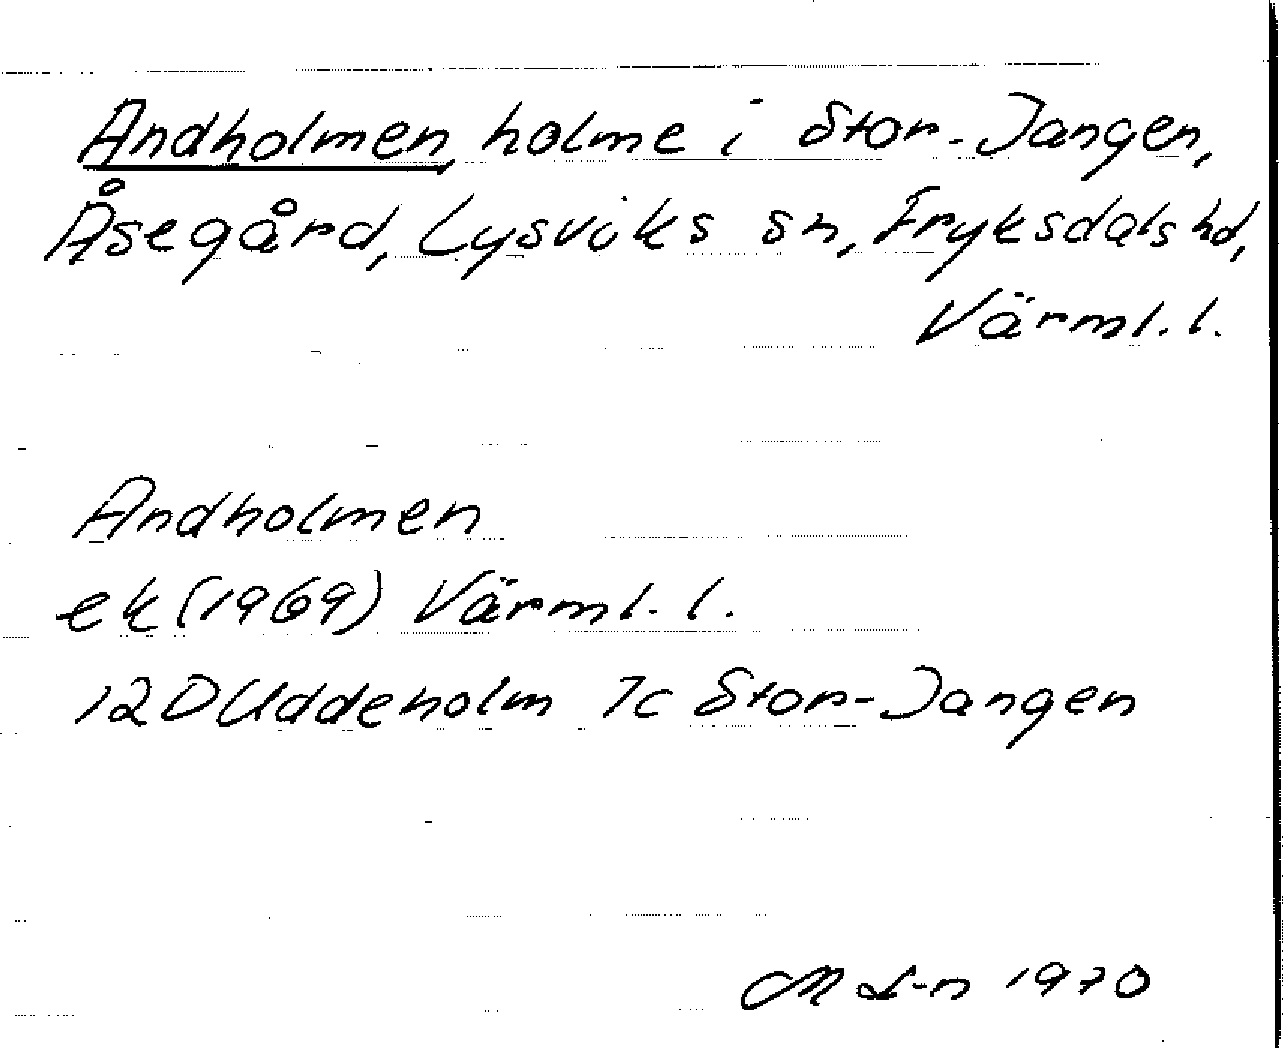 Andholmen, holme i Stor-Jangen,
Åsegård, Lysviks sn, Fryksdals hd,
Värml. l.
Andholmen
ek (1969) Värml. l.
12D Uddeholm 7c Stor-Jangen
M L-n 1970